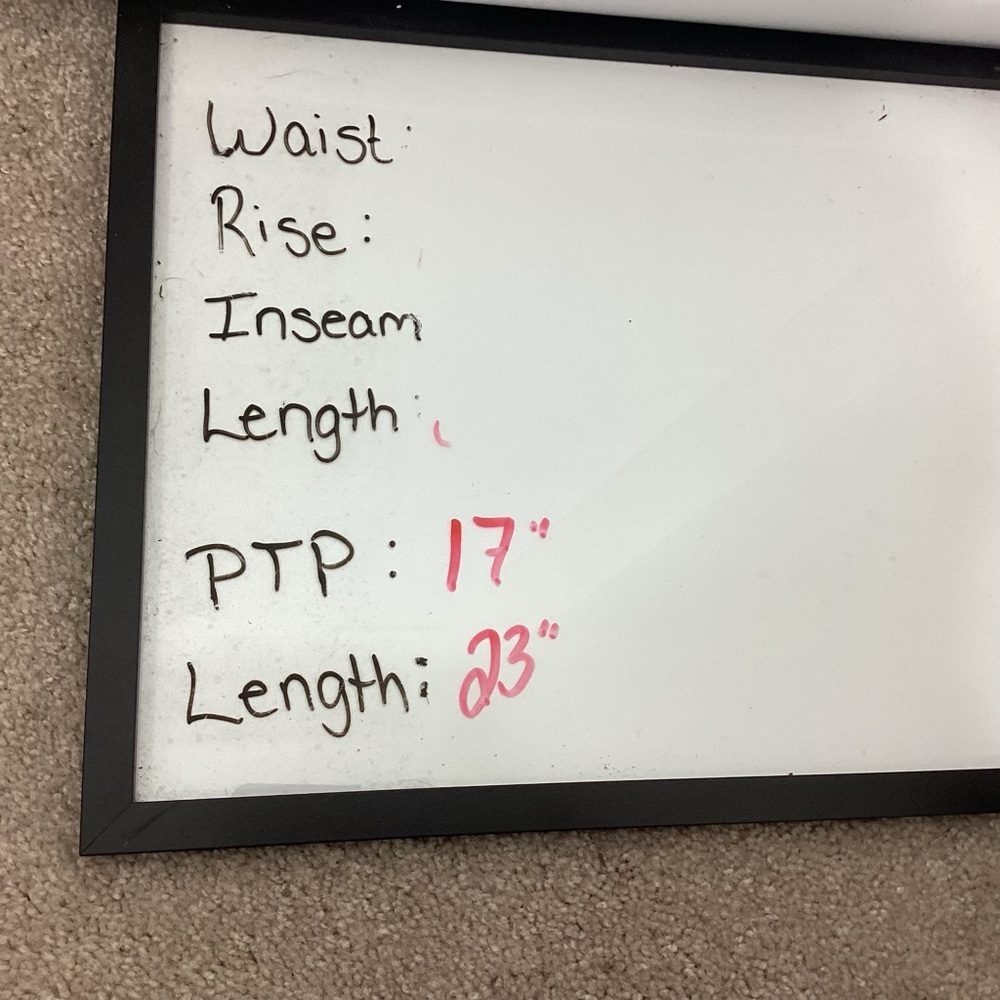 Waist:
Rise:
Inseam
Length:
PTP: 17"
Length: 23"